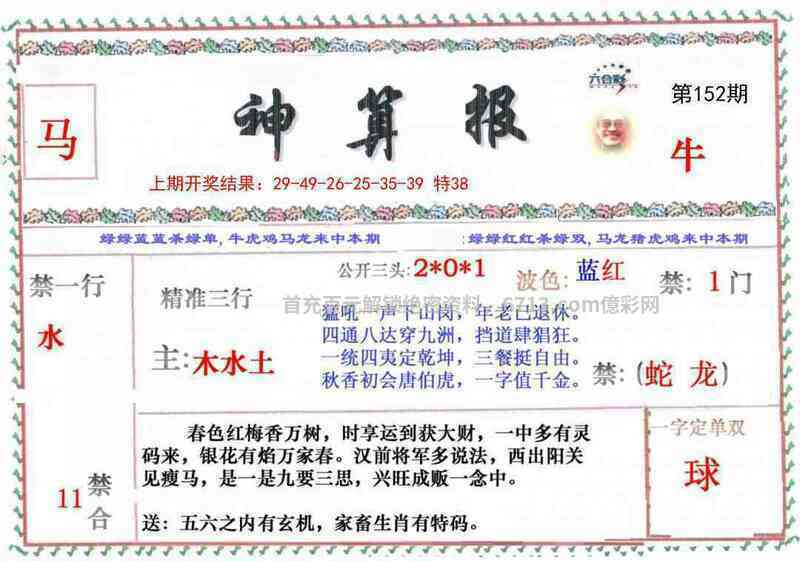 六合彩
第152期
马
神算报
牛
上期开奖结果：29-49-26-25-35-39 特38
绿绿蓝蓝杀绿单, 牛虎鸡马龙来中本期
:绿绿红红杀绿双, 马龙猪虎鸡来中本期
禁一行
水
精准三行
主:木水土
公开三头:2*0*1
波色:蓝红
禁:1门
首充百元解锁绝密资料：6713.com億彩网
猛吼一声下山岗，年老已退休。
四通八达穿九洲，挡道肆猖狂。
一统四夷定乾坤，三餐挺自由。
秋香初会唐伯虎，一字值千金。
禁:(蛇 龙)
11禁合
春色红梅香万树，时享运到获大财，一中多有灵
码来，银花有焰万家春。汉前将军多说法，西出阳关
见瘦马，是一是九要三思，兴旺成贩一念中。
送：五六之内有玄机，家畜生肖有特码。
一字定单双
球